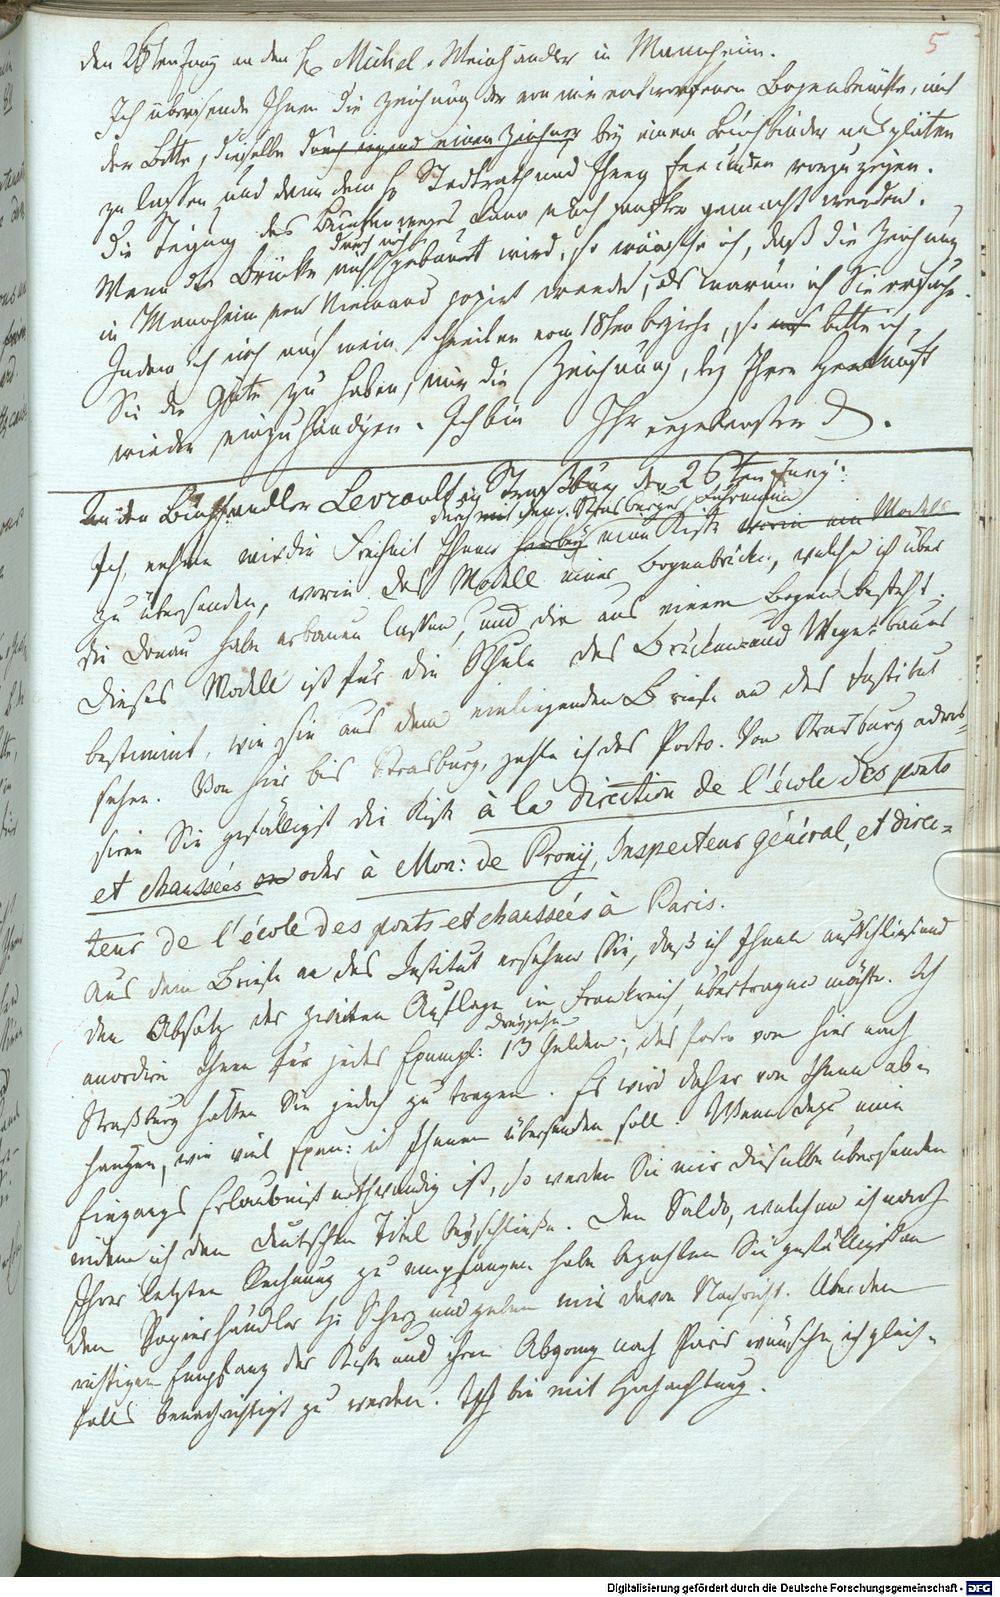 5
den 26ten Juny an den H. Michel, Weinhändler in Mannheim.
Ich übersende Ihnen die Zeichnung der von mir entworfenen Bogenbrücke, mit
der Bitte, dieselbe durch irgend einen Zeichner bey einem Buchbinder
zu lassen und dann dem H. Stadtrath und Ihren Freunden vorzuzeigen.
Die Steigung des Brückenweges kann noch gemacht werden.
durch mich
Wenn die Brücke nicht gebaut wird, so wünsche ich, daß die Zeichnung
in Mannheim von Niemand copirt werde, als warum ich Sie ersuche.
Indem ich mich auf mein Schreiben vom 18ten beziehe, so bitte ich
Sie die Güte zu haben, mir die Zeichnung, bey Ihrer Herkunft
wieder einzuhändigen. Ich bin Ihr ergebenster
An den Buchhändler Levrault in Straßburg den 26ten Juny:
durch mit dem Strasburger Fuhrmann
Ich nehme mir die Freiheit Ihnen hierbey eine Kiste worin ein Modell
zu übersenden, worin das Modell einer Bogenbrücke, welche ich über
die Donau habe erbauen lassen, und die aus einem Bogen besteht.
Dieses Modell ist für die Schule des Brücken- und Wege-baues
bestimmt, wie Sie aus dem einliegenden Briefe an das Institut
sehen. Von hier bis Strasburg, zahle ich das Porto. Von Strasburg adres-
siren Sie gefälligst die Kiste à la direction de l'école des ponts
et chaussées oder à Mon: de Prony, Inspecteur général, et direc=
teur de l'école des ponts et chaussées à Paris.
Aus dem Briefe an das Institut ersehen Sie, daß ich Ihnen ausschliessend
den Absatz der zweiten Auflage in Frankreich, übertragen möchte. Ich
dreyzehn
Ihnen für jedes Exempl: 13 Gulden; das Porto von hier nach
Straßburg hätten Sie jedoch zu tragen. Es wird daher von Ihnen ab=
hangen, wie viel Exem: ich Ihnen übersenden soll. Wenn dazu eine
Eingangs Erlaubniß nothwendig ist, so werden Sie mir dieselbe übersenden
indem ich den deutschen Titel beyschließe. Den Saldo, welchen ich nach
Ihrer letzten Rechnung zu empfangen habe bezahlen Sie gefälligst an
den Papierhändler H. Scherz und geben mir davon Nachricht. Über den
richtigen Empfang der Kiste und ihren Abgang nach Paris wünsche ich gleich=
falls benachrichtigt zu werden. Ich bin mit Hochachtung.
Digitalisierung gefördert durch die Deutsche Forschungsgemeinschaft - DFG